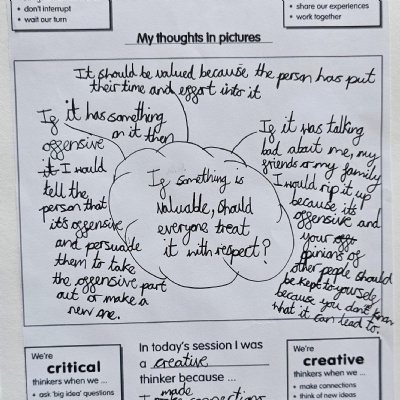 • don't interrupt
• wait our turn
• share our experiences
• work together
My thoughts in pictures
It should be valued because the person has put
their time and effort into it
If it has something
offensive on it then
it I would
tell the
person that
it's offensive
and persuade
them to take
the offensive part
out or make a
new one.
If something is
valuable, should
everyone treat
it with respect?
If it was talking
bad about me, my
friends or my family
I would rip it up
because it's
offensive and
your
opinions of
other people should
be kept to yourself
because you don't know
what it can lead to.
We're
critical
thinkers when we ...
• ask 'big idea' questions
In today's session I was
a creative
thinker because ...
I made connections
We're
creative
thinkers when we ...
• make connections
• think of new ideas